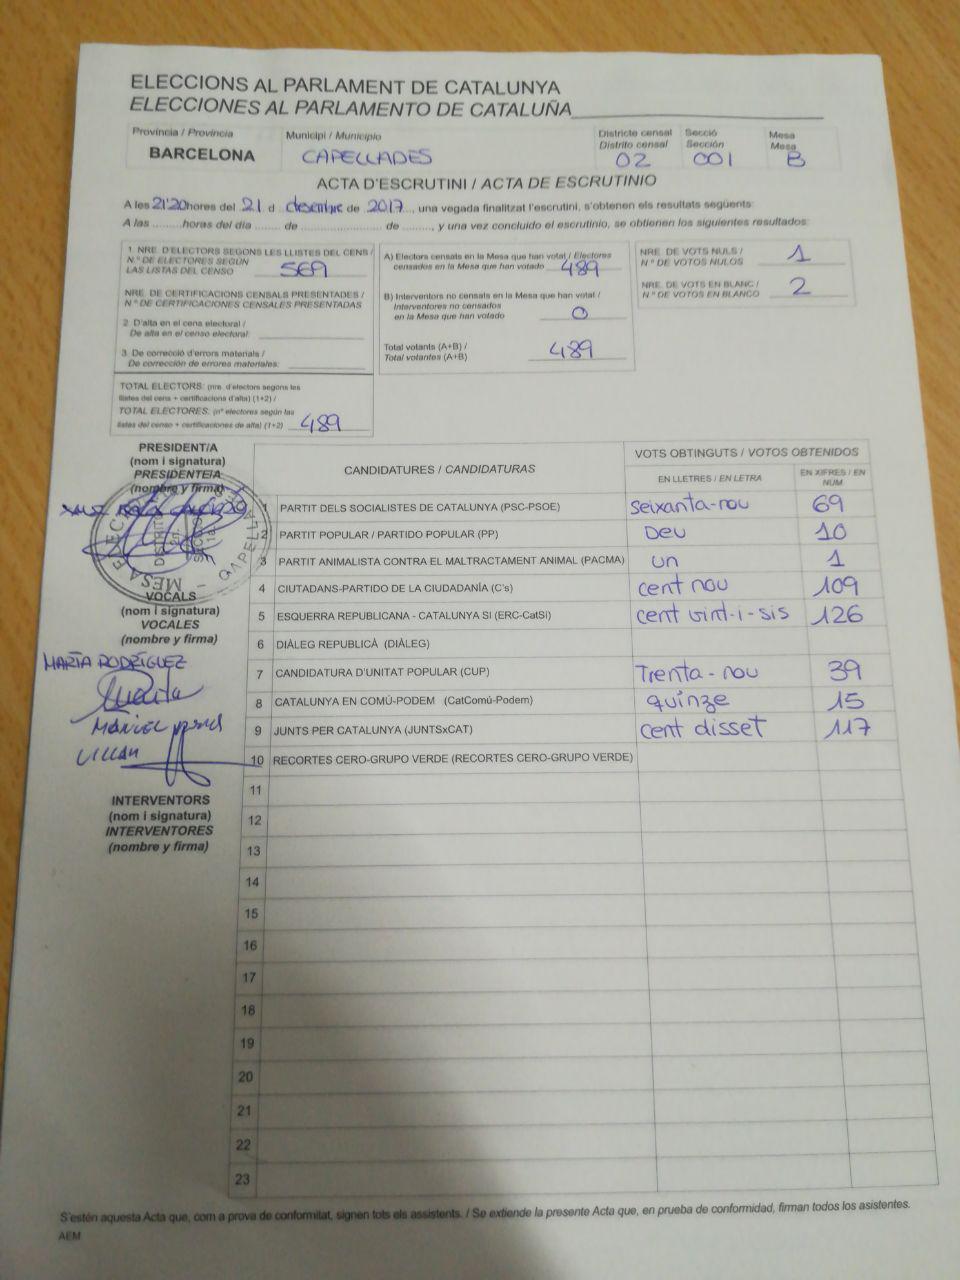 ELECCIONS AL PARLAMENT DE CATALUNYA
ELECCIONES AL PARLAMENTO DE CATALUÑA
Província / Provincia
BARCELONA
Municipi / Municipio
CAPELLADES
Districte censal
Distrito censal
02
Secció
Sección
001
Mesa
Mesa
B
ACTA D'ESCRUTINI / ACTA DE ESCRUTINIO
A les 21'20 hores del 21 d desembre de 2017, una vegada finalitzat l'escrutini, s'obtenen els resultats següents:
A las .........horas del día ....... de ......................... de ........, y una vez concluido el escrutinio, se obtienen los siguientes resultados:
1. NRE. D'ELECTORS SEGONS LES LLISTES DEL CENS /
N.º DE ELECTORES SEGÚN
LAS LISTAS DEL CENSO 569
NRE. DE CERTIFICACIONS CENSALS PRESENTADES /
N.º DE CERTIFICACIONES CENSALES PRESENTADAS
2. D'alta en el cens electoral /
De alta en el censo electoral:
3. De correcció d'errors materials /
De corrección de errores materiales:
TOTAL ELECTORS: (nre. d'electors segons les
llistes del cens + certificacions d'alta) (1+2) /
TOTAL ELECTORES: (nº electores según las
listas del censo + certificaciones de alta) (1+2) 489
A) Electors censats en la Mesa que han votat / Electores
censados en la Mesa que han votado 489
B) Interventors no censats en la Mesa que han votat /
Interventores no censados
en la Mesa que han votado 0
Total votants (A+B) /
Total votantes (A+B) 489
NRE. DE VOTS NULS /
N.º DE VOTOS NULOS 1
NRE. DE VOTS EN BLANC /
N.º DE VOTOS EN BLANCO 2
PRESIDENT/A
(nom i signatura)
PRESIDENTE/A
(nombre y firma)
MESA ELEC
CAPELLA
VOCALS
(nom i signatura)
VOCALES
(nombre y firma)
MARÍA RODRÍGUEZ
INTERVENTORS
(nom i signatura)
INTERVENTORES
(nombre y firma)
CANDIDATURES / CANDIDATURAS
VOTS OBTINGUTS / VOTOS OBTENIDOS
EN LLETRES / EN LETRA
EN XIFRES / EN NUM
1 PARTIT DELS SOCIALISTES DE CATALUNYA (PSC-PSOE) seixanta-nou 69
2 PARTIT POPULAR / PARTIDO POPULAR (PP) Deu 10
3 PARTIT ANIMALISTA CONTRA EL MALTRACTAMENT ANIMAL (PACMA) un 1
4 CIUTADANS-PARTIDO DE LA CIUDADANÍA (C's) cent nou 109
5 ESQUERRA REPUBLICANA - CATALUNYA SI (ERC-CatSí) cent vint-i-sis 126
6 DIÀLEG REPUBLICÀ (DIÀLEG)
7 CANDIDATURA D'UNITAT POPULAR (CUP) Trenta-nou 39
8 CATALUNYA EN COMÚ-PODEM (CatComú-Podem) quinze 15
9 JUNTS PER CATALUNYA (JUNTSxCAT) cent disset 117
10 RECORTES CERO-GRUPO VERDE (RECORTES CERO-GRUPO VERDE)
11
12
13
14
15
16
17
18
19
20
21
22
23
S'estén aquesta Acta que, com a prova de conformitat, signen tots els assistents. / Se extiende la presente Acta que, en prueba de conformidad, firman todos los asistentes.
AEM